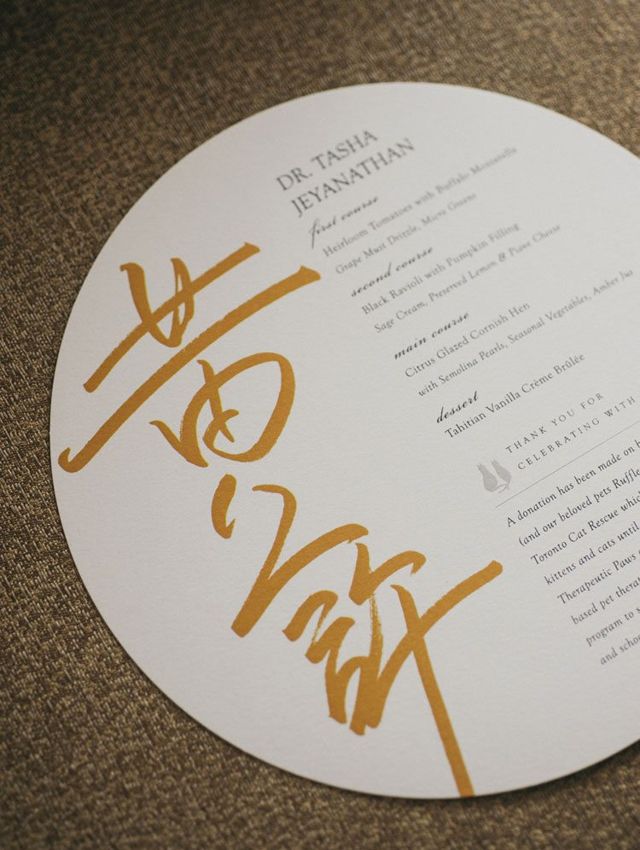 DR. TASHA
JEYANATHAN
first course
Heirloom Tomatoes with Buffalo Mozzarella
Grape Must Drizzle, Micro Greens
second course
Black Ravioli with Pumpkin Filling
Sage Cream, Preserved Lemon & Piave Cheese
main course
Citrus Glazed Cornish Hen
with Semolina Pearls, Seasonal Vegetables, Amber Jus
dessert
Tahitian Vanilla Crème Brûlée
黄
THANK YOU FOR
CELEBRATING WITH
A donation has been made on
(and our beloved pets Ruffle
Toronto Cat Rescue whic
kittens and cats until
Therapeutic Paws
based pet thera
program to s
and schoo